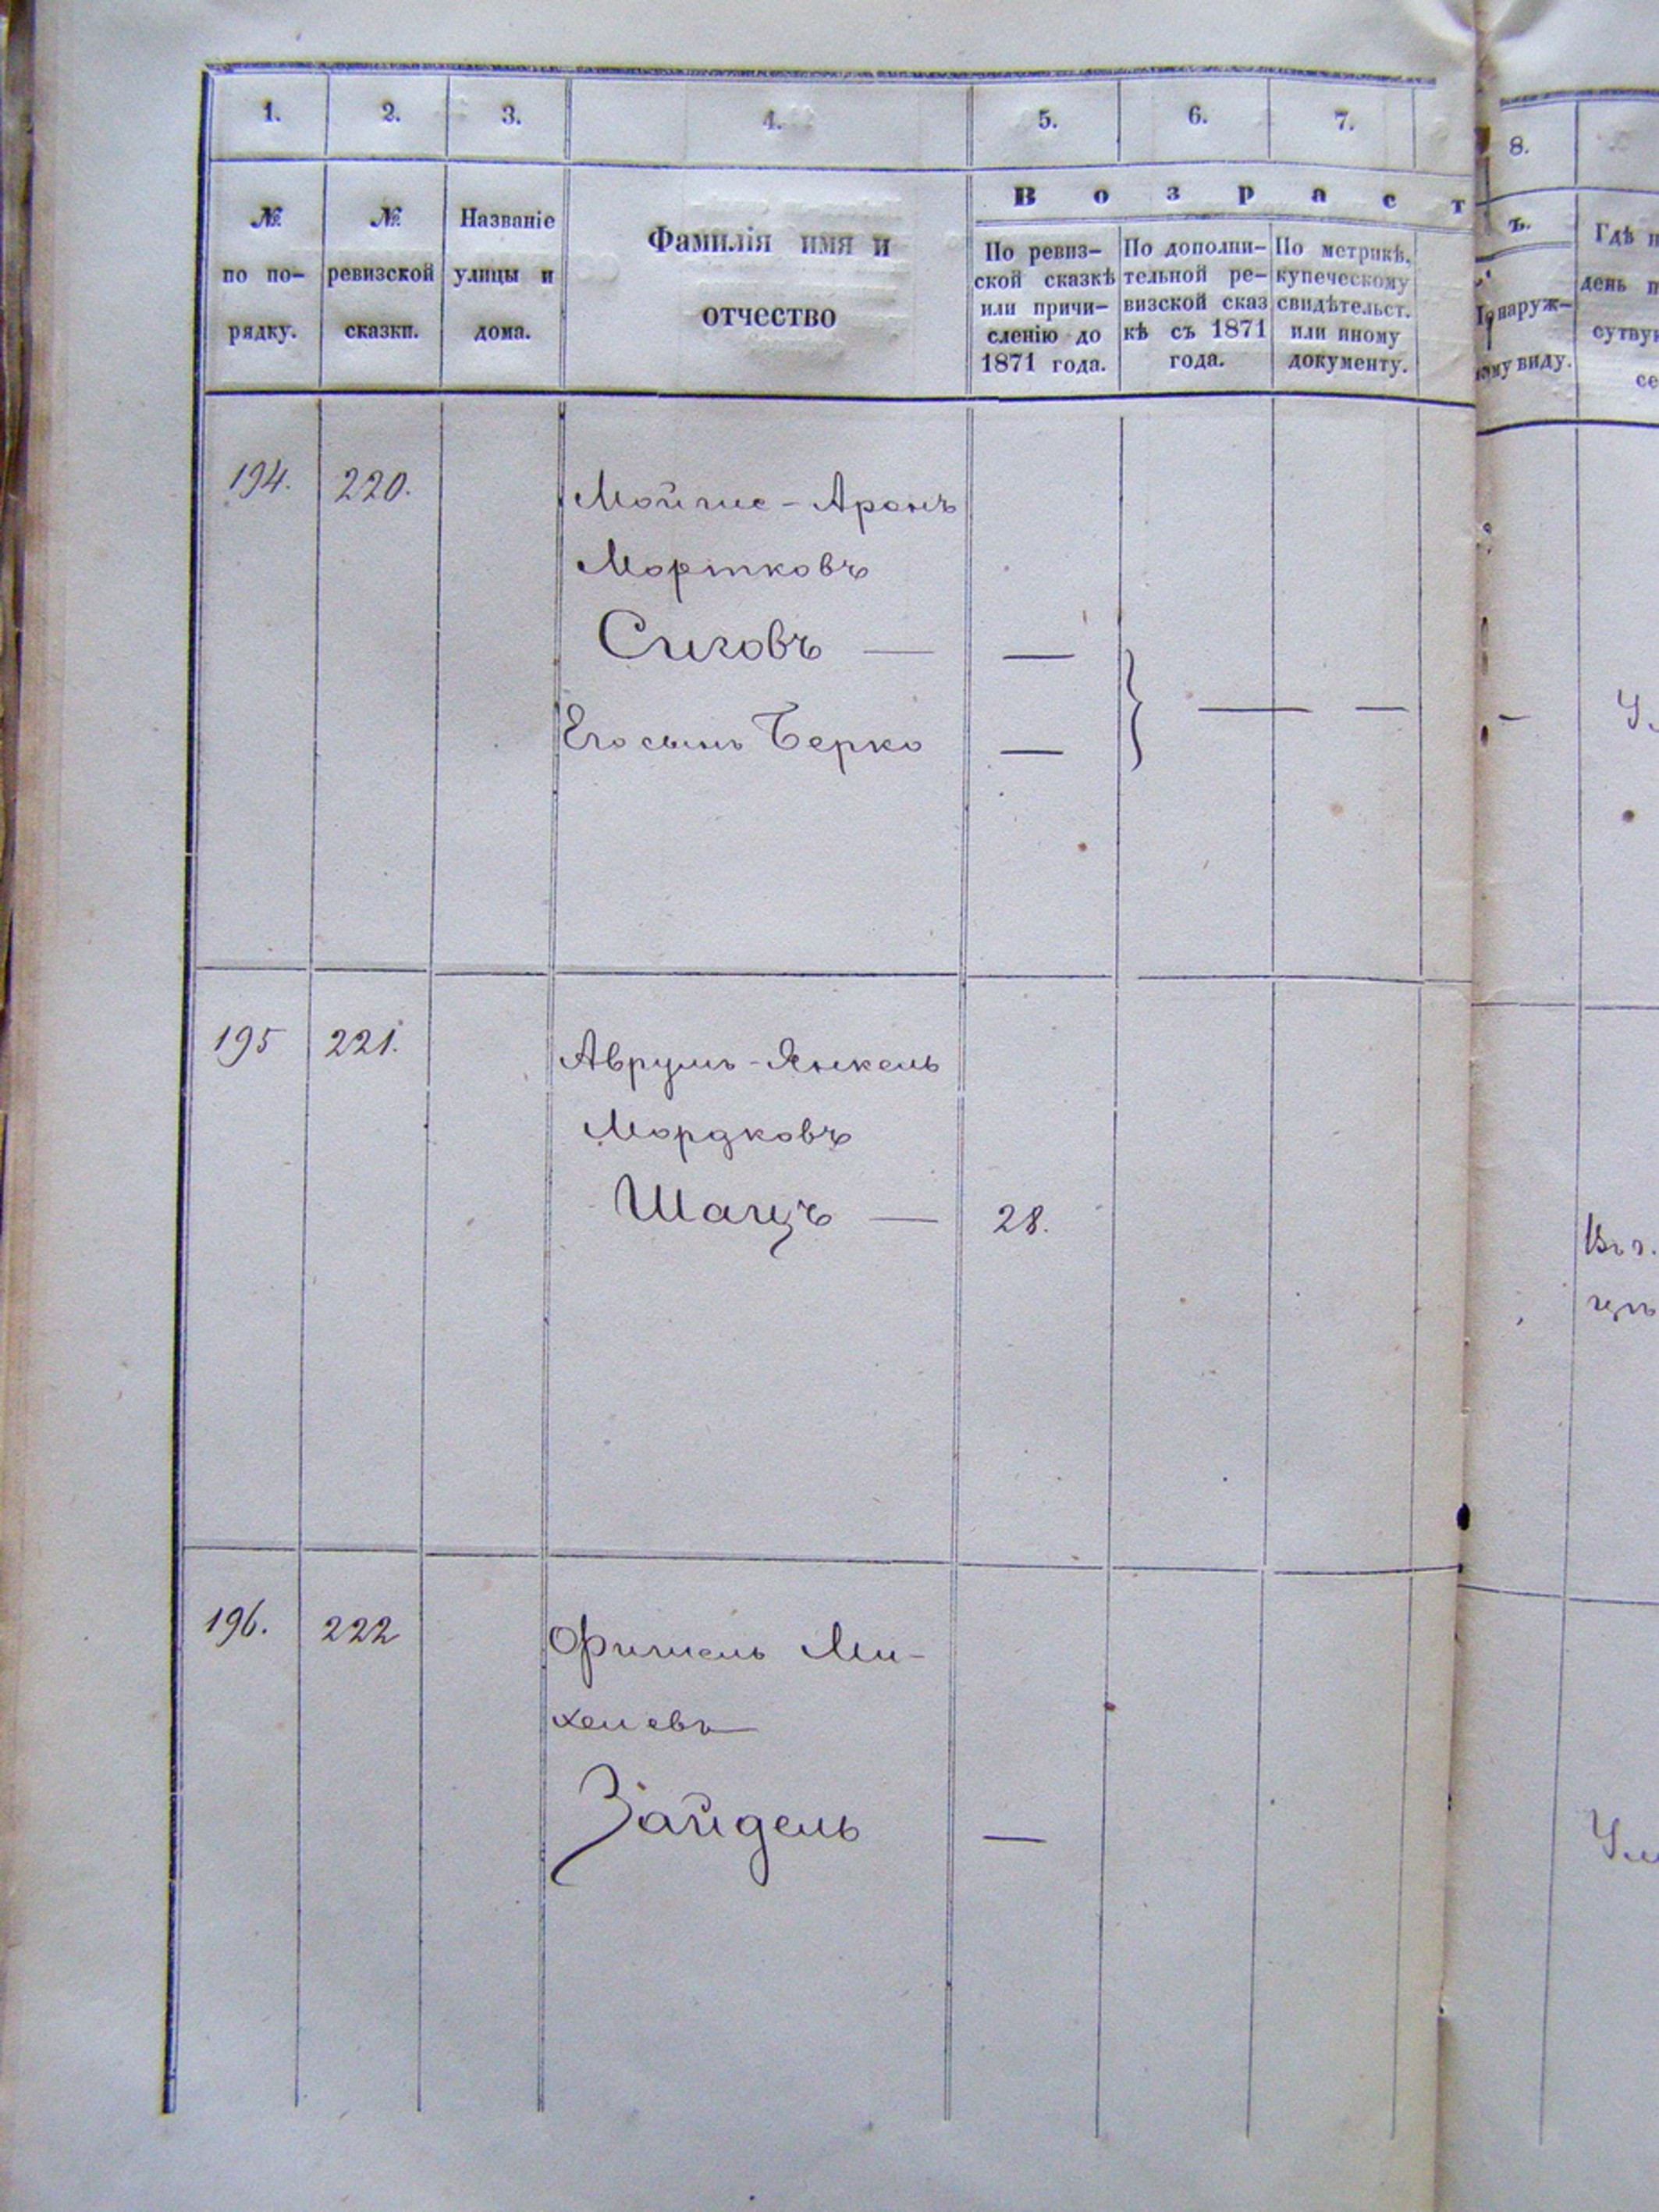 1. 2. 3. 4. 5. 6. 7. 8.
№ по по-рядку.
№ ревизской сказки.
Названіе улицы и дома.
Фамилія имя и
отчество
Возраст
ъ.
По ревиз-
ской сказкѣ
или причи-
сленію до
1871 года.
По дополни-
тельной ре-
визской сказ
кѣ съ 1871
года.
По метрикѣ,
купеческому
свидѣтельст.
или иному
документу.
наруж-
виду.
Гдѣ
день
сутву
се
194. 220. Мойше-Аронъ
Мортковъ
Сиговъ — —
Его сынъ Берко — } — — —
195 221. Аврумъ-Янкель
Мордковъ
Шацъ — 28.
196. 222 Фишель Ми-
хелевъ
Зайдель —